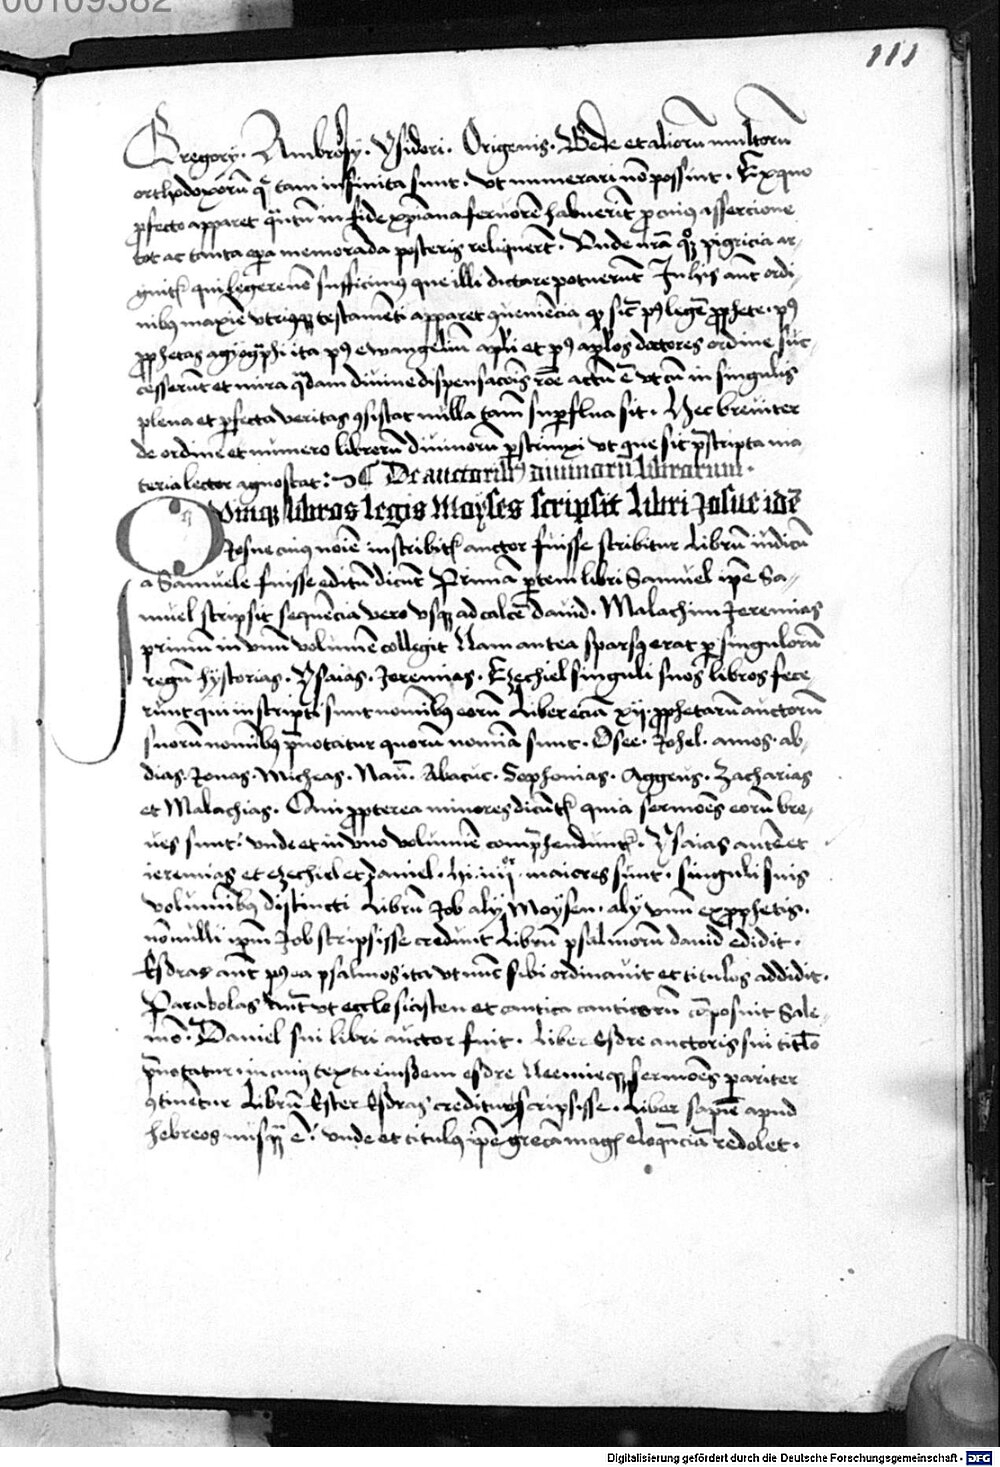 00109382
111
Gregorÿ. Ambrosÿ. Ysideri. Origenis. Bede et aliorū multorū
orthodoxorū q̄ tam infinita sunt. vt numerari nō possint. Ex quo
ꝓfecto apparet q̄ntū in fide xp̄iana feruorē habuerīt ꝓ cuius assercione
tot ac tanta oꝑa memorāda posteris reliquerūt. Unde nr̄a pigricia ar-
guit᷑ qui legere nō sufficimus que illi dictare potuerūt In his aūt ordi-
nibus maxime vtriusqꝫ testamēti apparet queniēcia ꝙ sic̄ pꝰ legē ꝓphete. pꝰ
ꝓphetas agyogͣphi ita pꝰ ewangeliū apl̄i et pꝰ ap̄los doctores ordine suc-
cesserūt et mira q̄dam diuine dispensacōis rōe actū ē vt cū in singulis
plena et ꝑfecta veritas ꝯsistat nulla tam̄ suꝑflua sit. Hec breuiter
de ordine et numero librorū diuinorū ꝑstrinxi vt que sit p̄scripta ma
teria lector agnoscat: De auctoribꝰ diuinorū librorum.
Quinqꝫ libros legis Moyses scripsit Libri Josue idē
Josue cuius noīe inscribit᷑ auctor fuisse scribitur Librū iudicū
a Samuele fuisse editū dicūt Primā ꝑtem libri Samuel ip̄e Sa-
muel scripsit sequēcia vero vsqꝫ ad calcē dauid. Malachim Jeremias
primū in vnū volumē collegit Nam antea sparsus erat ꝑ singulorū
regū hystorias. Ysaias. Jeremias. Ezechiel singuli suos libros fece-
runt qui inscripti sunt nomībꝰ eorū Liber eciā xij. ꝓphetarū auctorū
suorū nomībꝰ p̄notatur quorū nomīa sunt. Osee. Johel. amos. ab-
dias. Jonas. Micheas. Naū. Abacuc. Sophonias. Aggeus. Zacharias
et Malachias. Qui ꝓpterea minores dicūt᷑ quia sermōes eorū bre-
ues sunt. vnde et in vno volumīe comp̄hendunt᷑. Ysaias autē et
ieremias et ezechiel et Daniel. hi. iiijor. maiores sunt. singuli suis
volumībꝰ distincti Librū Job alÿ Moysen. alÿ vnū ex ꝓphetis.
nōnulli ip̄m Job scripsisse credunt Librū psalmorū dauid edidit.
Esdras aūt pꝰea psalmos ita vt nūc sibi ordinauit et titulos addidit.
Parabolas aūt vt ecclesiasten et cantica canticorū cōposuit Salo-
mō. Daniel sui libri auctor fuit. Liber Esdre auctoris sui titl̄o
p̄notatur in cuius textu eiusdem esdre Neemieqꝫ sermōes pariter
ꝯtinētur Librū Ester Esdras creditur scripsisse. Liber sapīe apud
hebreos nusqͣ ē. vnde et titulus ip̄e grecā magꝭ eloquēciā redolet.
Digitalisierung gefördert durch die Deutsche Forschungsgemeinschaft - DFG